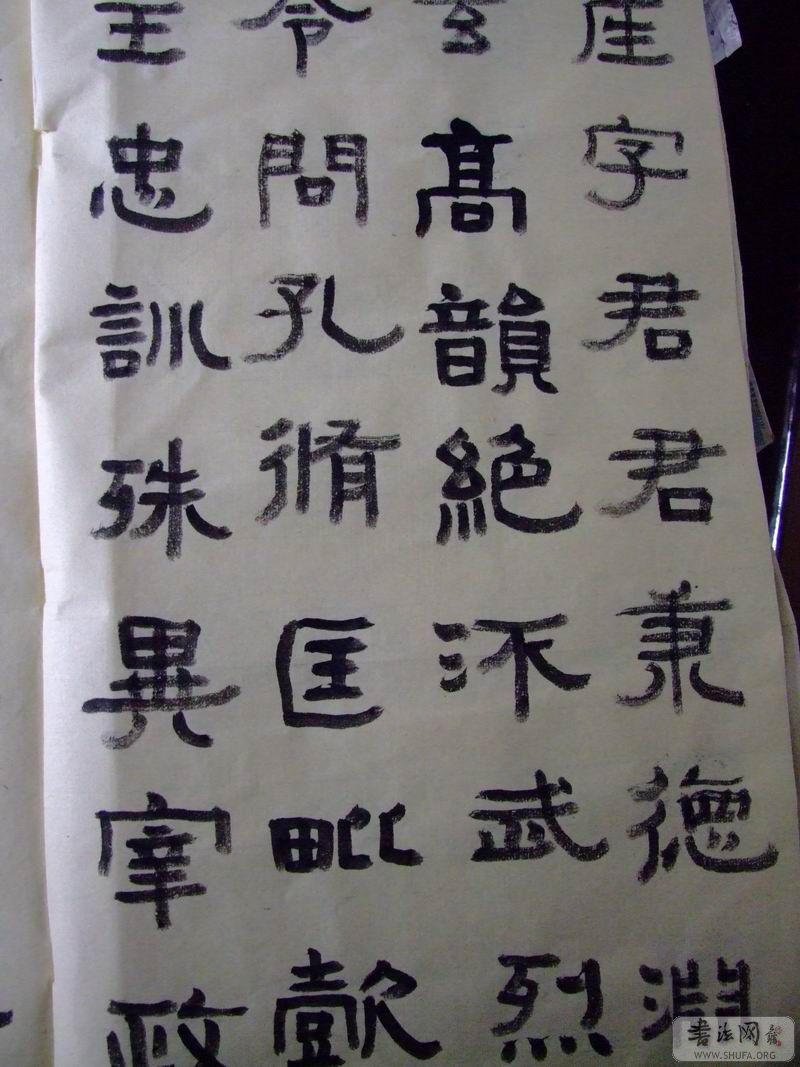 字君君秉德淵
玄高韻絕武烈
令問孔脩匡毗懿
忠訓殊異宰政
書法网
WWW.SHUFA.ORG